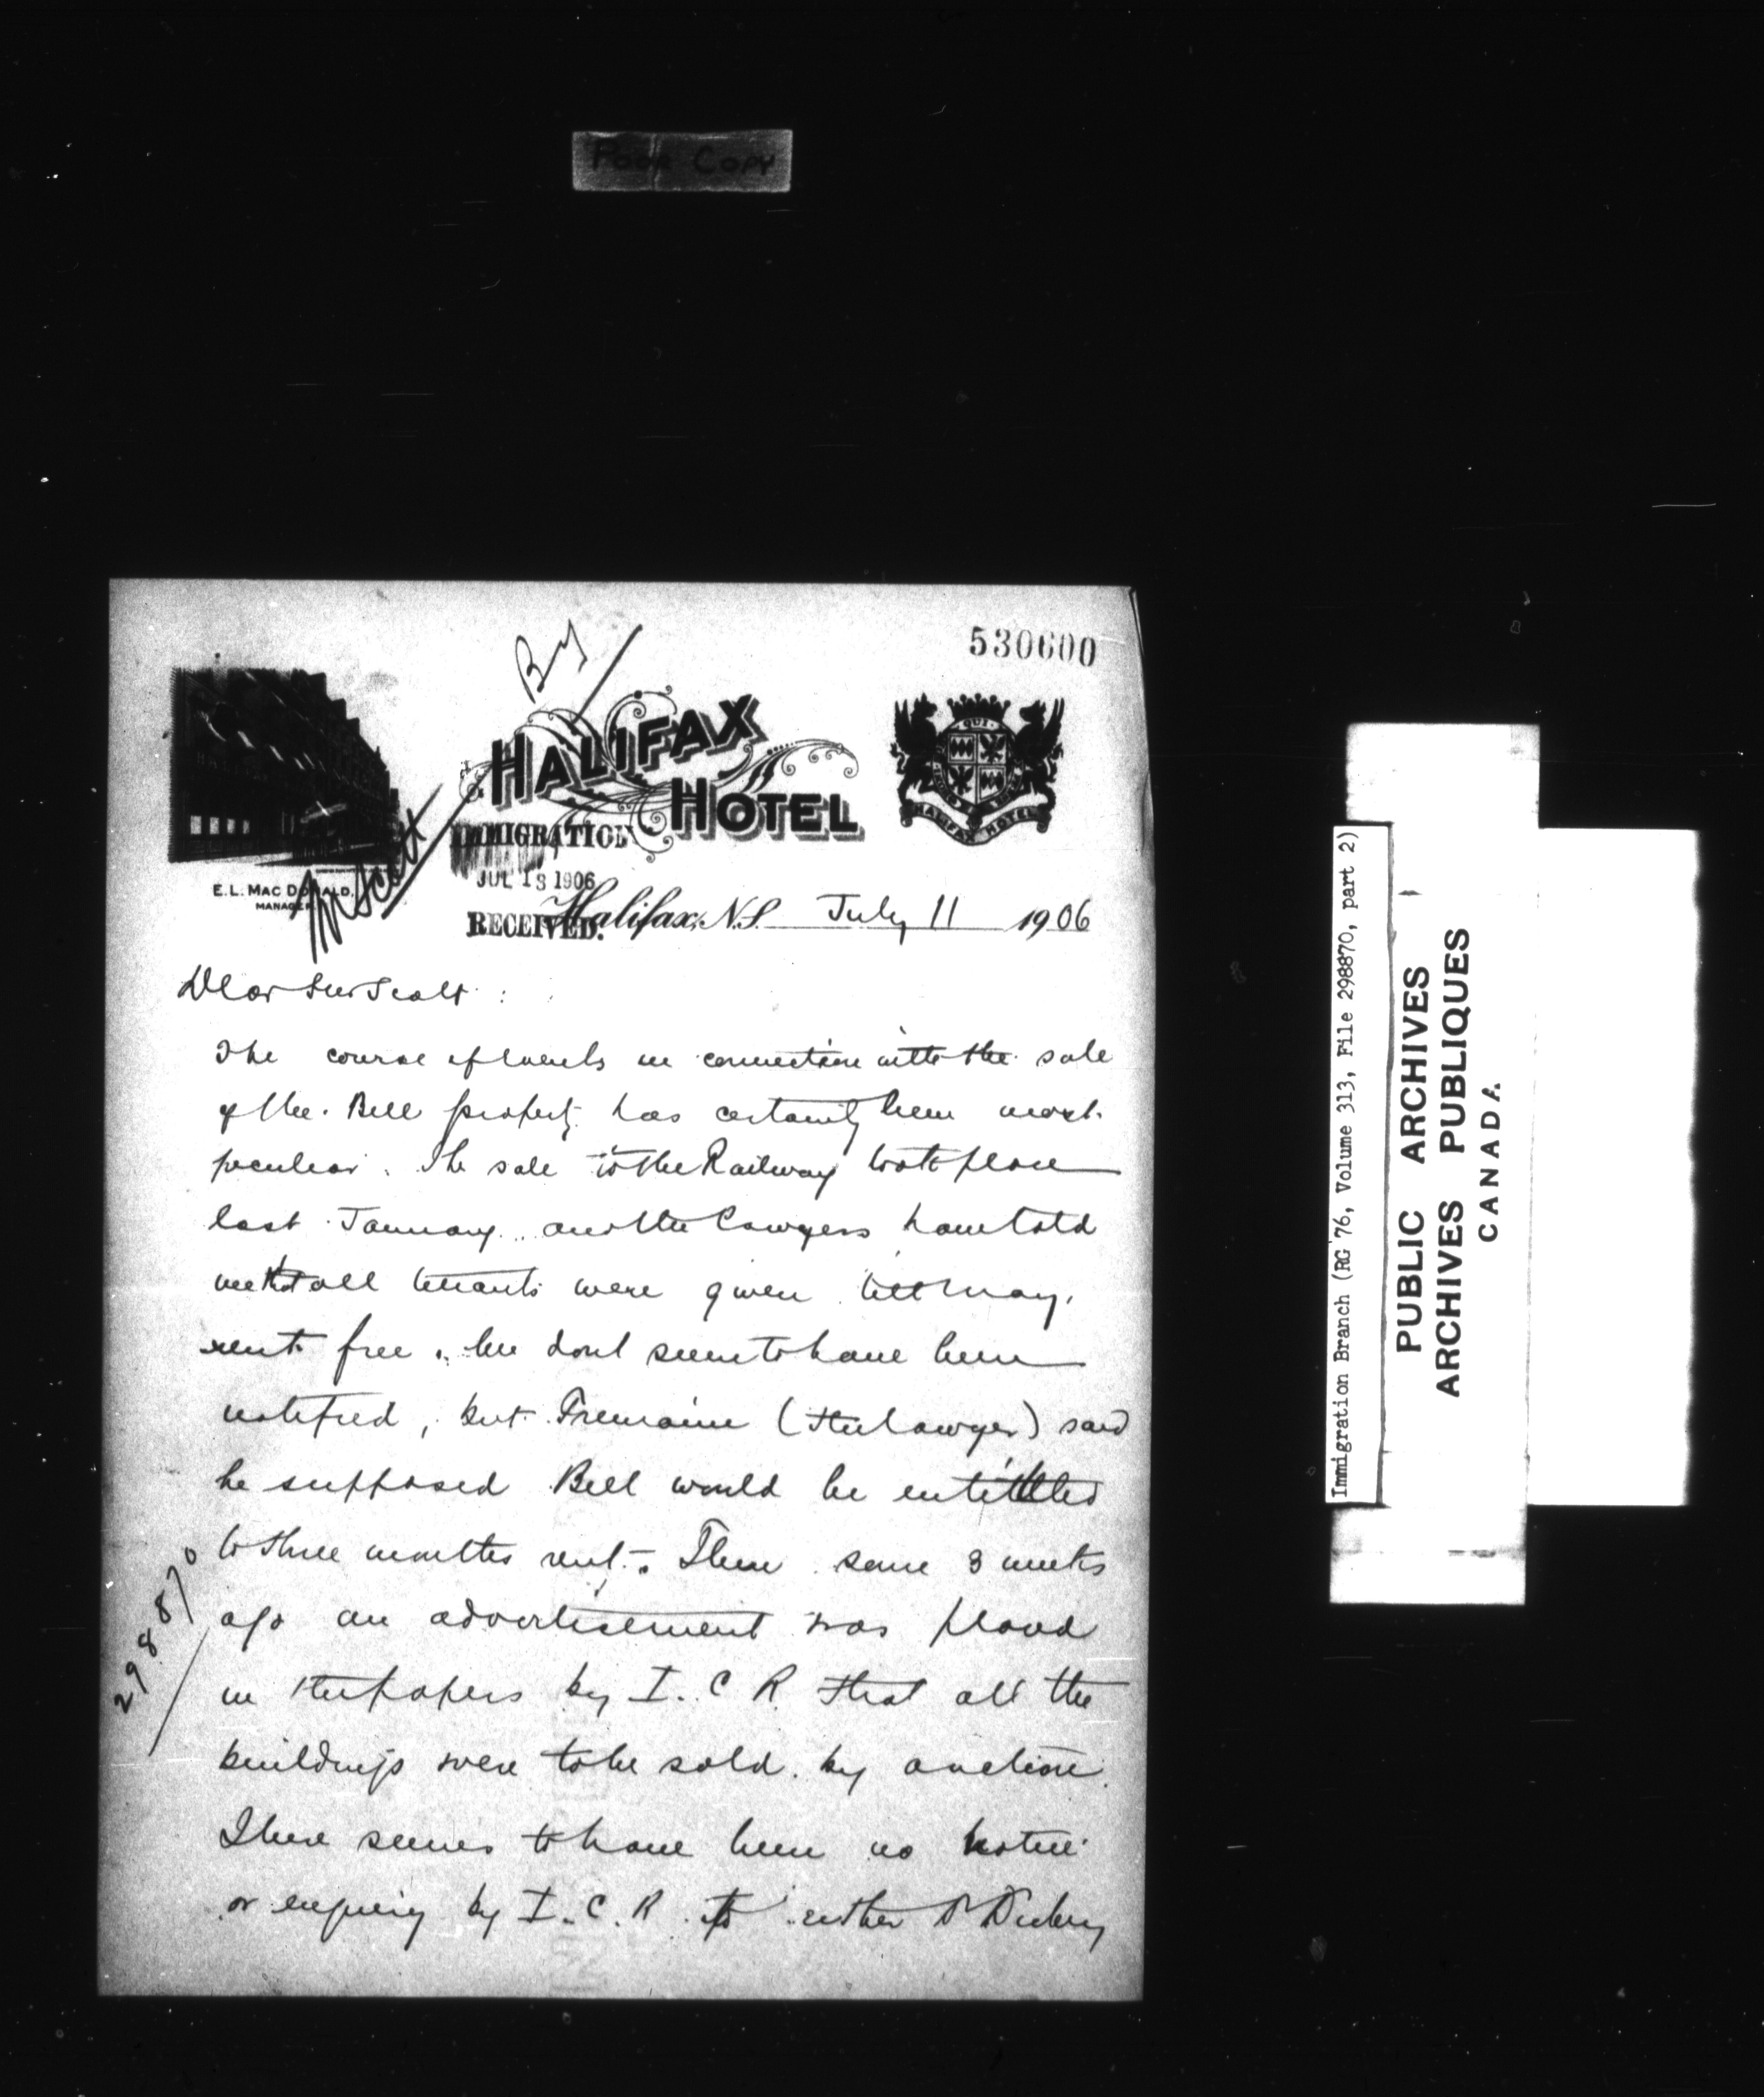 POOR COPY
530600
By
HALIFAX
HOTEL
QUI
HALIFAX HOTEL
E.L. MAC DONALD,
MANAGER.
Mr Scott
IMMIGRATION
JUL 13 1906
RECEIVED.
Halifax, N.S. July 11 1906
Dear Mr Scott :
The course of events in connection with the sale
of the Bell property has certainly been most
peculiar. The sale to the Railway took place
last January and the Lawyers have told
me that all tenants were given till May,
rent free. We dont seem to have been
notified, but Tremaine (the lawyer) said
he supposed Bell would be entitled
to three months rent. Then some 3 weeks
ago an advertisement was placed
in the papers by I. C R. that all the
buildings were to be sold by auction.
There seems to have been no notice
or enquiry by I. C. R. to either Dr
298870
Immigration Branch (RG 76, Volume 313, File 298870, part 2)
PUBLIC ARCHIVES
ARCHIVES PUBLIQUES
CANADA